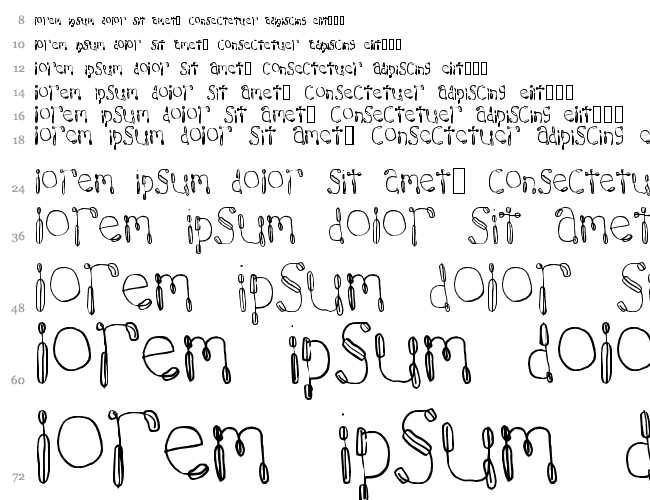 8 lorem ipsum dolor sit amet□ consectetuer adipiscing elit□□□
10 lorem ipsum dolor sit amet□ consectetuer adipiscing elit□□□
12 lorem ipsum dolor sit amet□ consectetuer adipiscing elit□□□
14 lorem ipsum dolor sit amet□ consectetuer adipiscing elit□□□
16 lorem ipsum dolor sit amet□ consectetuer adipiscing elit□□□
18 lorem ipsum dolor sit amet□ consectetuer adipiscing e
24 lorem ipsum dolor sit amet□ consectetu
36 lorem ipsum dolor sit amet
48 lorem ipsum dolor si
60 lorem ipsum dolo
72 lorem ipsum d